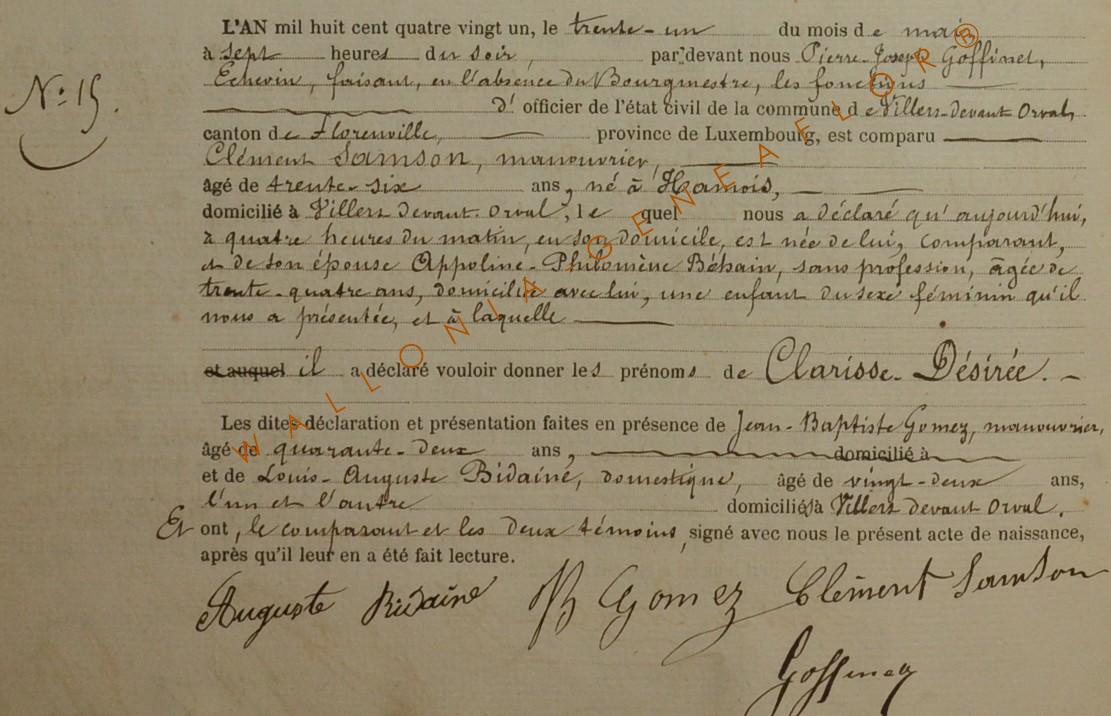 L'AN mil huit cent quatre vingt un, le trente-un du mois de mai
à sept heures du soir, par devant nous Pierre-Joseph Goffinet,
Echevin, faisant, en l'absence du Bourgmestre, les fonctions
N° 15.
d' officier de l'état civil de la commune de Villers-devant Orval,
canton de Florenville, province de Luxembourg, est comparu
Clément Samson, manouvrier,
âgé de trente-six ans, né à Hamois,
domicilié à Villers devant Orval, lequel nous a déclaré qu'aujourd'hui,
à quatre heures du matin, en son domicile, est née de lui, comparant,
et de son épouse Appoline-Philomène Béhain, sans profession, âgée de
trente-quatre ans, domiciliée avec lui, une enfant du sexe féminin qu'il
nous a présentée, et à laquelle
et auquel il a déclaré vouloir donner les prénoms de Clarisse-Désirée.
Les dites déclaration et présentation faites en présence de Jean-Baptiste Gomez, manouvrier,
âgé de quarante-deux ans, domicilié à
et de Louis-Auguste Bidaine, domestique, âgé de vingt-deux ans,
l'un et l'autre domiciliés à Villers devant Orval.
Et ont, le comparant et les deux témoins, signé avec nous le présent acte de naissance,
après qu'il leur en a été fait lecture.
Auguste Bidaine JB Gomez Clément Samson
Goffinet
WALLONIA GENEALOR ®